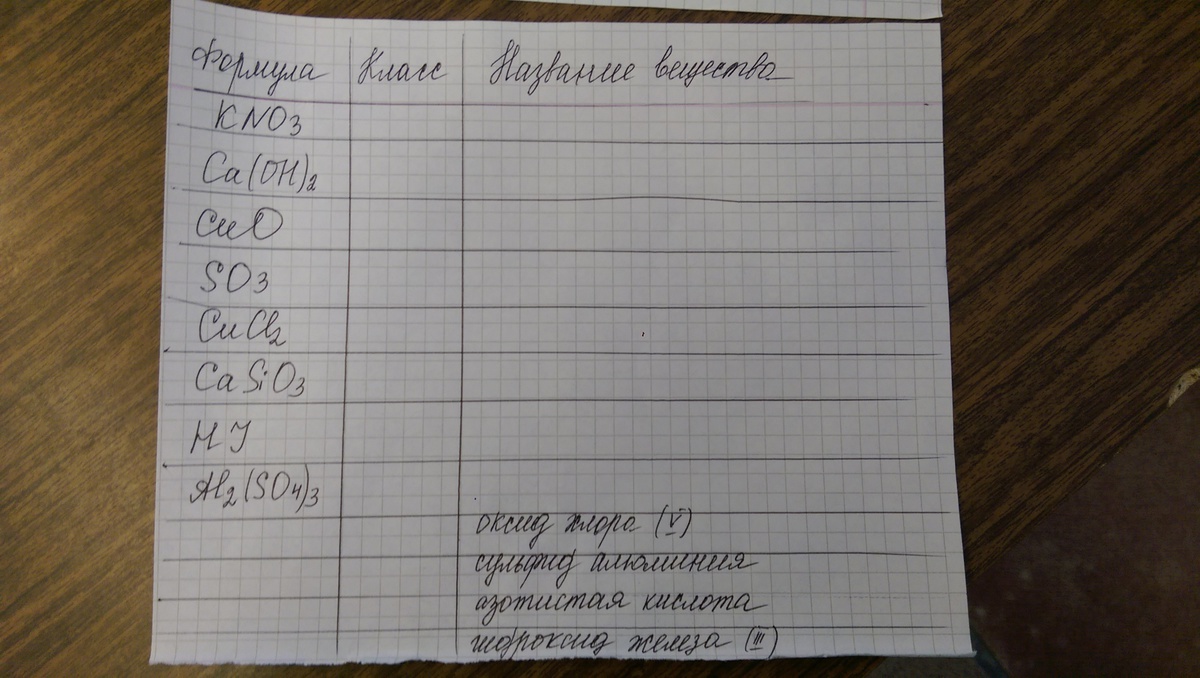 Формула Класс Название вещества
KNO3
Ca(OH)2
CuO
SO3
CuCl2
CaSiO3
HJ
Al2(SO4)3
оксид хлора (V)
сульфид алюминия
азотистая кислота
гидроксид железа (III)